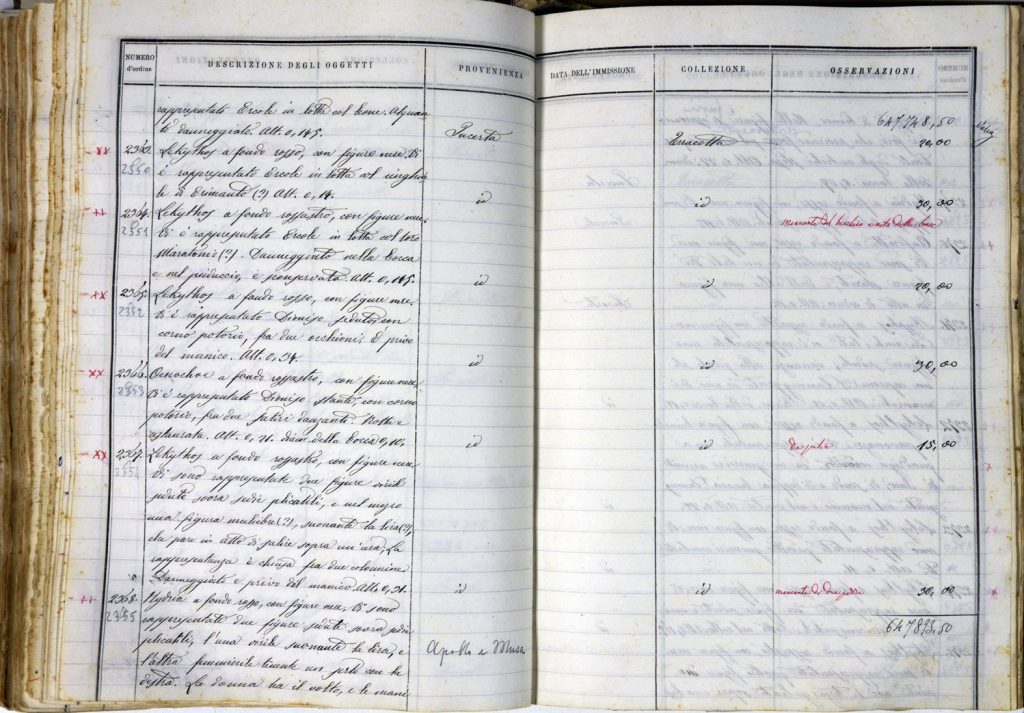 NUMERO
d'ordine
DESCRIZIONE DEGLI OGGETTI
PROVENIENZA
DATA DELL'IMMISSIONE
COLLEZIONE
OSSERVAZIONI
647748,50
rappresentato Ercole in lotta col leone. Alquan
to danneggiato. Alt. 0,145.
Incerta
Terracotta
20,00
2363. Lekythos a fondo rosso, con figure nere. Vi
2350 è rappresentato Ercole in lotta col cinghia
le d'Erimanto (?) Alt. 0,14.
id
id
30,00
2364. Lekythos a fondo rossastro, con figure nere.
2351 Vi è rappresentato Ercole in lotta col toro
Maratonio (?). Danneggiato nella bocca
e nel pieduccio, è sconservato. Alt. 0,145.
id
id
20,00
2365. Lekythos a fondo rosso, con figure nere.
2352 Vi è rappresentato Dioniso seduto, con
corno potorio, fra due occhioni. È privo
del manico. Alt. 0,34.
id
id
30,00
2366. Oenochoe a fondo rossastro, con figure nere.
2353 Vi è rappresentato Dioniso stante, con corno
potorio, fra due satiri danzanti. Rotta e
restaurata. Alt. 0,21. diam. della bocca 0,10.
id
id
15,00
2367. Lekythos a fondo rossastro, con figure nere.
2354 Vi sono rappresentate due figure virili
sedute sovra sedie plicatili, e nel mezzo
una figura muliebre (?), suonante la lira (?),
che pare in atto di salire sopra un'ara. La
rappresentanza è chiusa fra due colonnine.
Danneggiato e privo del manico. Alt. 0,31.
id
id
30,00
2368. Hydria a fondo rosso, con figure nere. Vi sono
2355 rappresentate due figure sedute sovra sedie
plicatili, l'una virile suonante la lira, e
l'altra femminile tenente un serto con la
destra. La donna ha il volto, e le mani
Apollo e Musa
647893,50